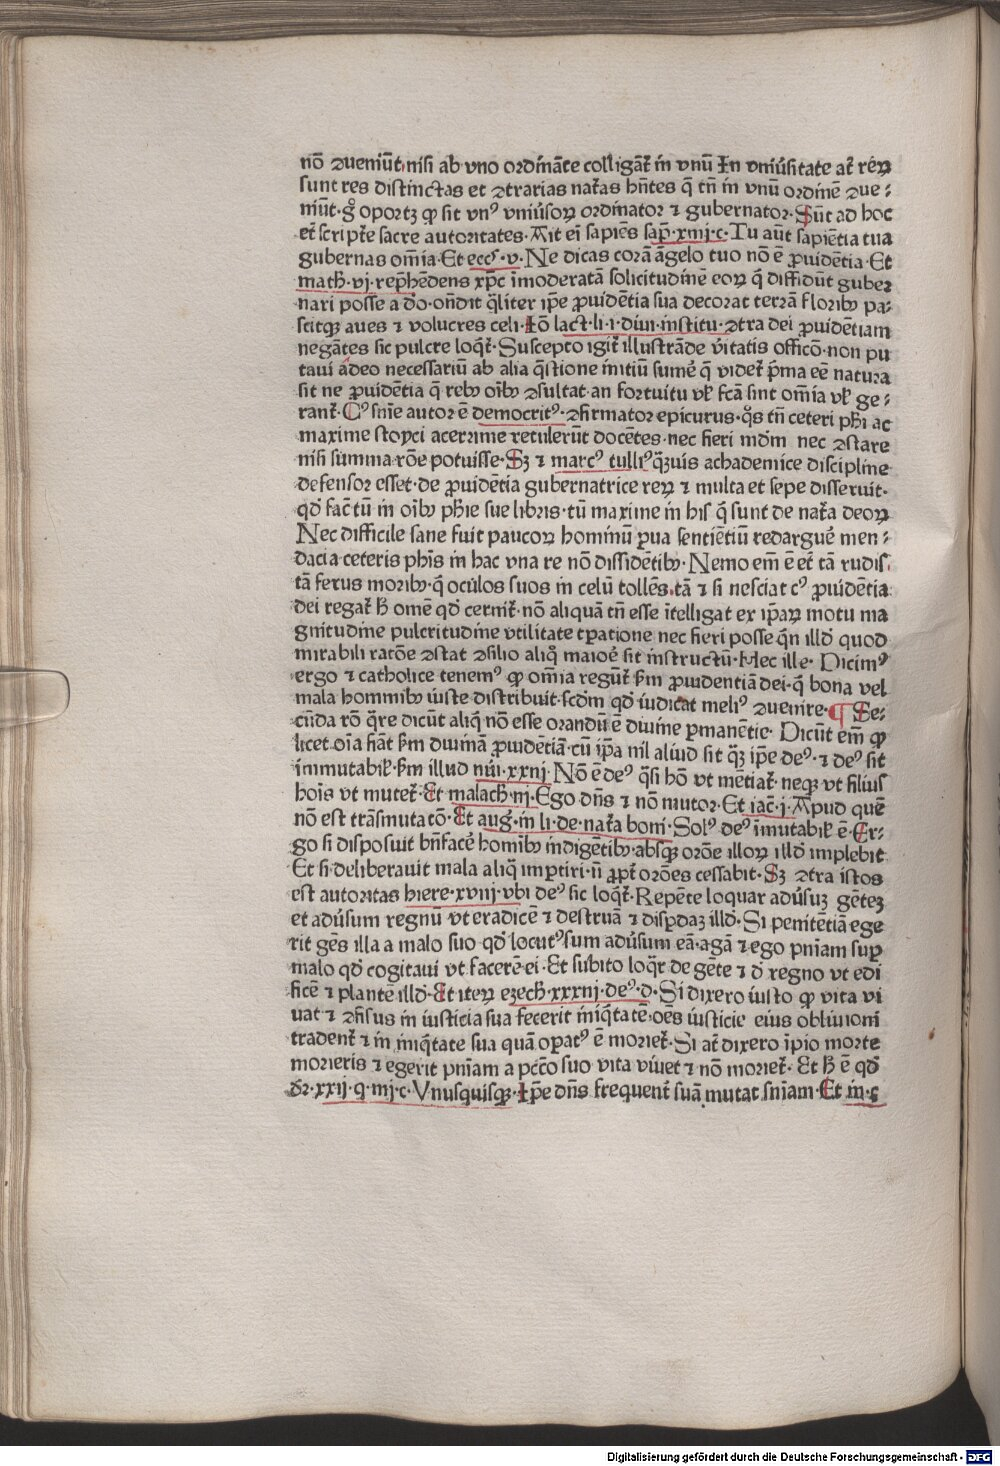 nō ↄueniūt nisi ab vno ordināte colligāt̃ in vnū In vniu̓sitate at̃ reꝝ
sunt res distinctas et ↄtrarias nat̃as hñtes q̃ tñ in vnū ordinē ↄue⸗
niūt. gͦ oportꝫ ꝙ sit vnꝰ vniu̓soꝝ ordinator ⁊ gubernator. Sūt ad hoc
et̃ script̃e sacre autoritates. Ait ei̅ sapiēs sap̃. xiiij. c. Tu aūt sapiētia tua
gubernas om̅ia. Et eccͨ. v. Ne dicas corā āgelo tuo nō ē ꝓuidētia. Et
math̓. vj. rep̃hēdens xp̃c īmoderatā solicitudinē eoꝝ q̃ diffidūt guber
nari posse a dō. on̄dit q̃liter ip̃e ꝓuidētia sua decorat terrā floribꝰ pa⸗
scitqꝫ aues ⁊ volucres celi. Iō lact̃. li. i. diui. institu. ↄtra dei ꝓuidētiam
negātes sic pulcre loq̃t̃. Suscepto igit̃ illustrāde v̓itatis officō. non pu
taui adeo necessariū ab alia q̃stione initiū sumē q̃ videt̃ p̃ma eē natura
sit ne ꝓuidētia q̃ rebꝰ oībꝰ ↄsultat. an fortuitu vl̓ fcā sint om̅ia vl̓ ge⸗
rant̃. Cꝰ sn̅ie autor ē democritꝰ. ↄfirmator epicurus. q̊s tñ ceteri ph̓i ac
maxime stoyci acerrime retulerūt docētes. nec fieri mdm̄ nec ↄstare
nisi summa rōne potuisse. Sꝫ ⁊ marcꝰ tulliꝰ q̃ꝫuis achademice discipline
defensor esset. de ꝓuidētia gubernatrice reꝝ ⁊ multa et sepe disseruit.
qd̓ factū in oībꝰ ph̓ie sue libris. tū maxime in his q̃ sunt de nat̃a deoꝝ
Nec difficile sane fuit paucoꝝ hominū p̱ua sentiētiū redarguē men⸗
dacia. ceteris ph̓is in hac vna re nō dissidētibꝰ. Nemo em̄ ē et̃ tā rudis.
tā ferus moribꝰ. q̃ oculos suos in celū tollēs. tā ⁊ si nesciat cꝰ ꝓuidētia
dei regat̃ h̓ omē qd̓ cernit̃. nō aliquā tñ esse ītelligat ex ip̃aꝝ motu ma
gnitudine pulcritudine vtilitate tp̱atione nec fieri posse q̃n illd̓ quod
mirabili ratōe ↄstat ↄsilio aliq̊ maioē sit instructū. Hec ille. Dicimꝰ
ergo ⁊ catholice tenemꝰ ꝙ om̅ia regūt̃ ẜm ꝓuidentiā dei. q̃ bona vel
mala hominibꝰ iuste distribuit. scdm̄ qd̓ iudicat meliꝰ ↄuenire. ¶ Se⸗
cūda rō q̃re dicūt aliq̊ nō esse orandū ē diuine p̱manētie. Dicūt em̄ ꝙ
licet oīa fiāt ẜm diuinā ꝓuidētiā. cū ip̃a nil aliud sit q̃ꝫ ip̃e deꝰ. ⁊ deꝰ sit
īmutabil̓. ẜm illud nūi. xxiij. Nō ē deꝰ q̃si hō vt mētiat̃. neqꝫ vt filius
hoīs vt mutet̃. Et malach̓. iij. Ego dn̅s ⁊ nō mutor. Et iac̃. j. Apud quē
nō est trāsmutatō. Et aug̓. in li. de. nat̃a boni. Solꝰ deꝰ īmutabil̓ ē. Er⸗
go si disposuit bn̄facē homībꝰ indigētibꝰ. absqꝫ orōe illoꝝ illd̓ implebit
Et si deliberauit mala aliq̃ imp̱tiri. ñ ꝓpt̃ orōes cessabit. Sꝫ ↄtra istos
est autoritas hiere. xviij. vbi deꝰ sic loq̃t̃. Repēte loquar adu̓suꝫ gētēꝫ
et adu̓sum regnū vt eradicē ⁊ destruā ⁊ disp̱daꝫ illd̓. Si penitētiā ege
rit gēs illa a malo suo qd̓ locutꝰ sum adu̓sum eā. agā ⁊ ego pn̅iam sup̱
malo qd̓ cogitaui vt facerē ei. Et subito loq̃r de gēte ⁊ d̓ regno vt edi
ficē ⁊ plantē illd̓. Et iteꝝ ezech̓. xxxiij. deꝰ. d. Si dixero iusto ꝙ vita vi
uat ⁊ ↄfisus in iusticia sua fecerit iniq̃tatē. oēs iusticie eius obliuioni
tradent̃ ⁊ in iniq̃tate sua quā op̱atꝰ ē moriet̃. Si at̃ dixero īpio morte
morieris ⁊ egerit pn̅iam a pcc̄o suo vita viuet ⁊ nō moriet̃. Et h̓ ē qd̓
dr̄. xxij. q. iiij. c. Vnusquisqꝫ. Ip̃e dn̅s frequent̃ suā mutat sn̅iam. Et in. c
Digitalisierung gefördert durch die Deutsche Forschungsgemeinschaft - DFG